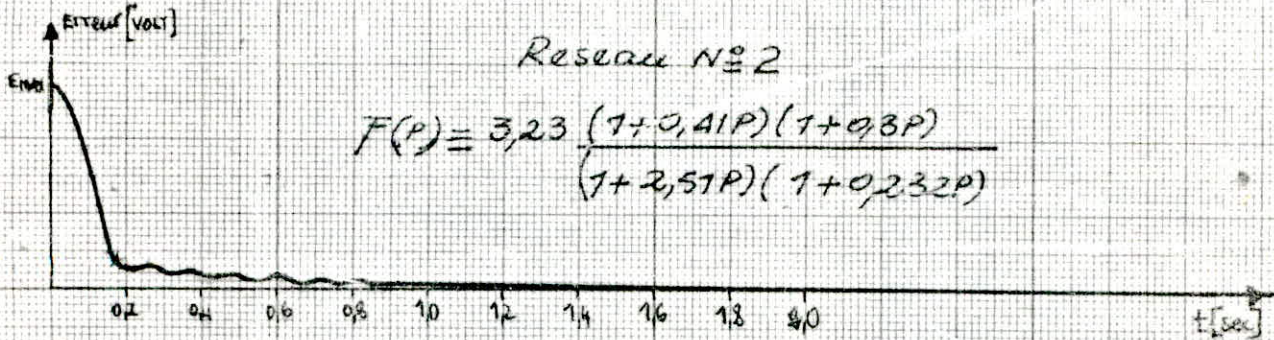 Erreur [VOLT]
Emax
Reseau Nº 2
F(P) = 3,23 (1+0,41P)(1+0,3P)
(1+2,51P)(1+0,232P)
0,2 0,4 0,6 0,8 1,0 1,2 1,4 1,6 1,8 2,0
t[sec]